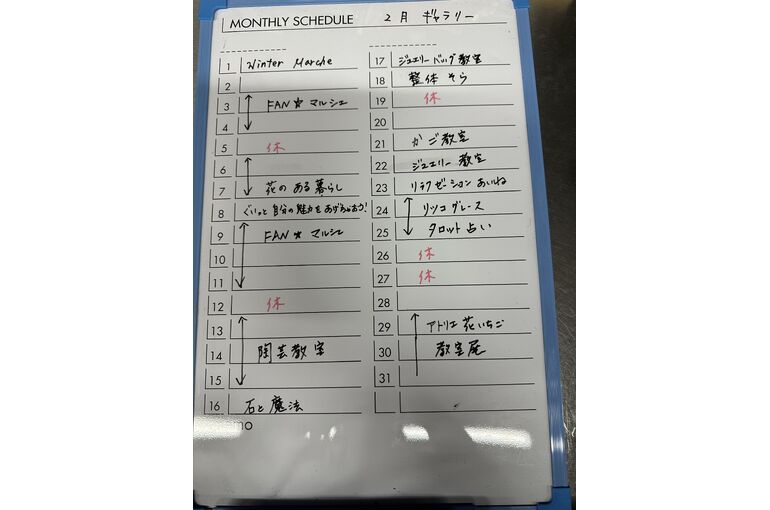 MONTHLY SCHEDULE 2月 ギャラリー
1 Winter Marche
2
3 FAN★マルシェ
4
5 休
6
7 花のある暮らし
8 ぐいっと自分の魅力をあげちゃおう!
9 FAN★マルシェ
10
11
12 休
13
14 陶芸教室
15
16 石と魔法
17 ジュエリーバッグ教室
18 整体 そら
19 休
20
21 かご教室
22 ジュエリー教室
23 リラクゼーションあいね
24 リツコグレース
25 タロット占い
26 休
27 休
28
29 アトリエ花いちご
30 教室尾
31